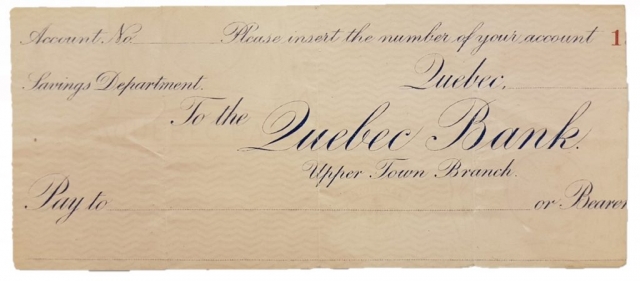 Account No. Please insert the number of your account 1
Quebec,
Savings Department.
To the Quebec Bank.
Upper Town Branch.
Pay to or Bearer